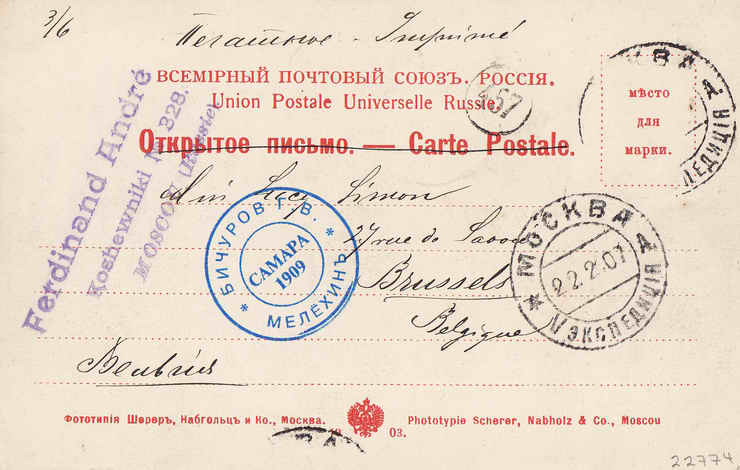 3/6
Печатное - Imprimé
ВСЕМІРНЫЙ ПОЧТОВЫЙ СОЮЗЪ. РОССІЯ.
Union Postale Universelle Russie.
Открытое письмо. — Carte Postale.
мѣсто
для
марки.
МОСКВА
ЭКСПЕДИЦІЯ
457
Ferdinand André
Koshewniki № 328.
MOSCOU (Russie)
Lucy Simon
27 rue de Savoie
Brussels
Belgique
Бельгія
БИЧУРОВ Г. В.
САМАРА
1909
МЕЛЁХИНЪ
МОСКВА
22.2.07
ЭКСПЕДИЦІЯ
Фототипія Шереръ, Набгольцъ и Ко., Москва.
03.
Phototypie Scherer, Nabholz & Co., Moscou
22774